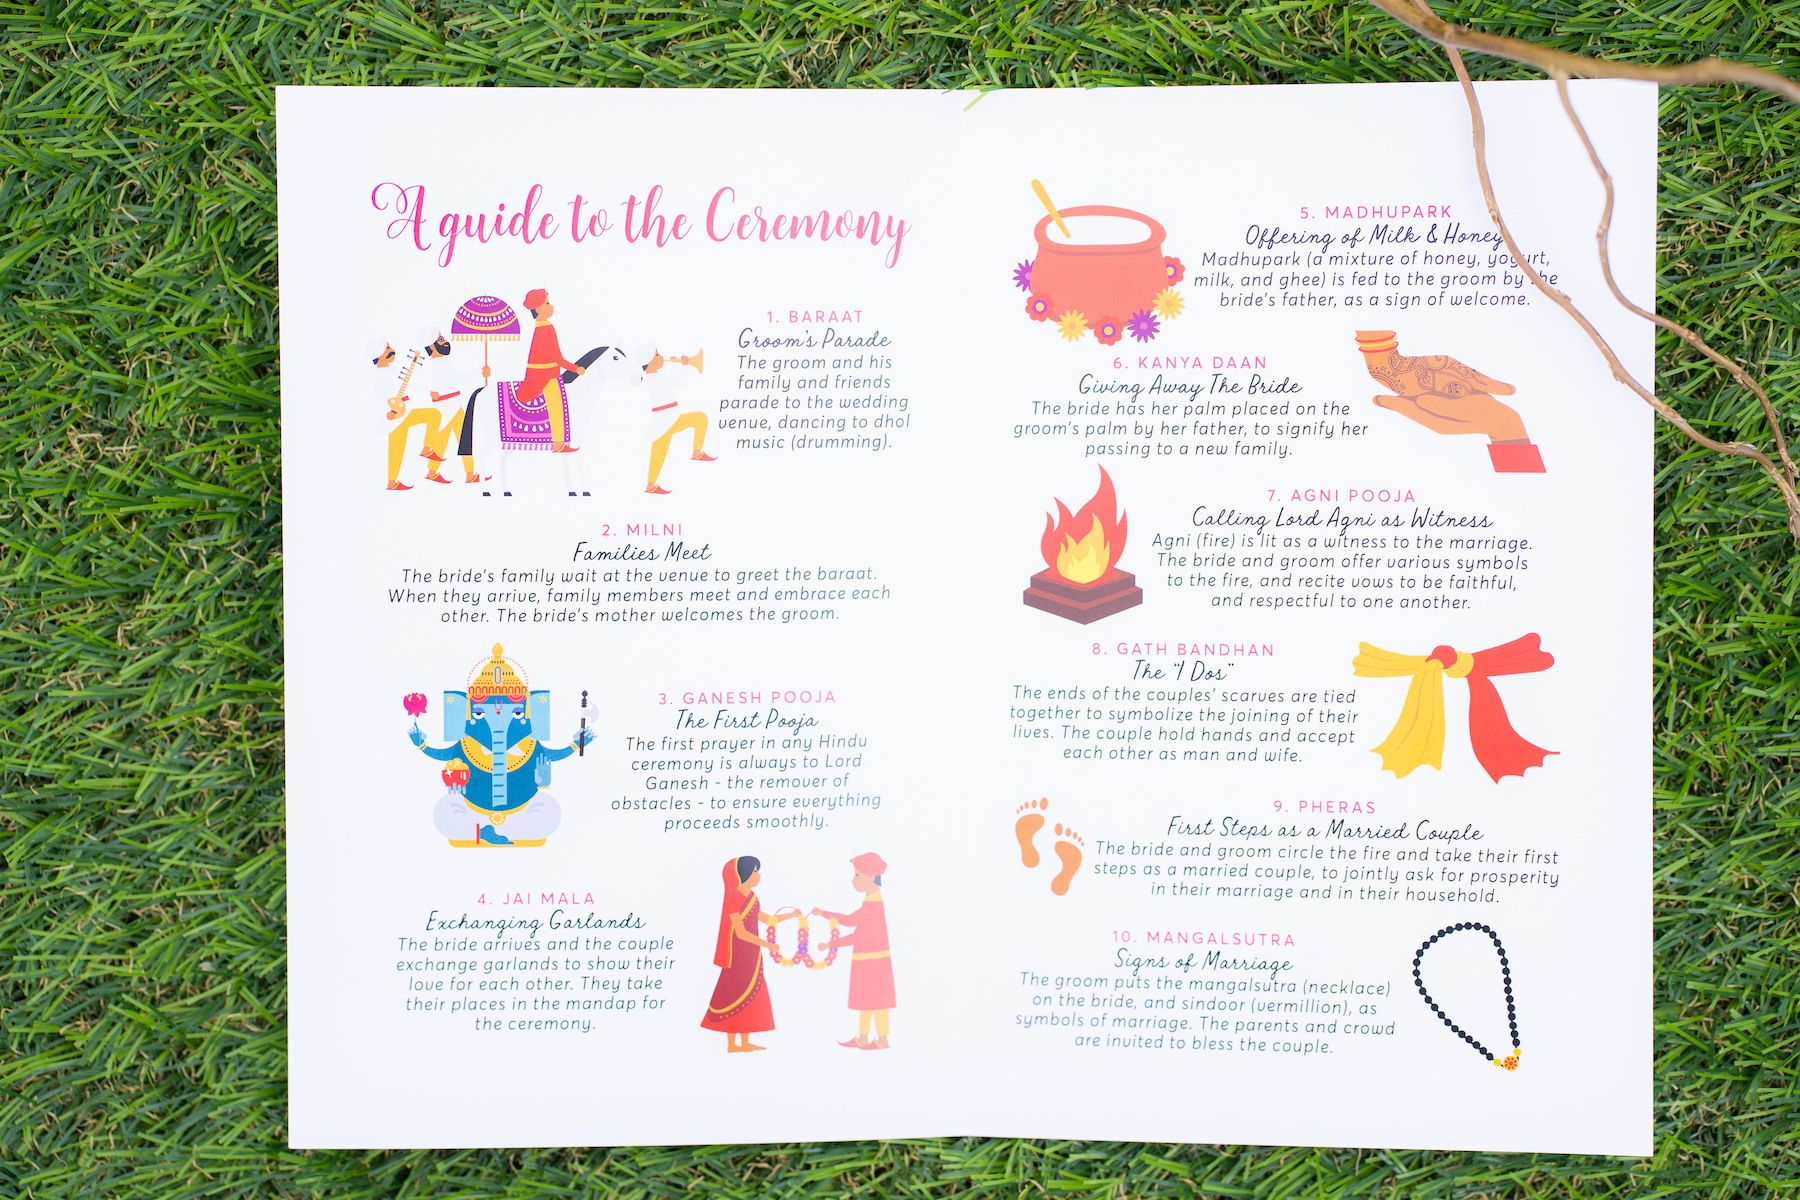 A guide to the Ceremony
1. BARAAT
Groom's Parade
The groom and his
family and friends
parade to the wedding
venue, dancing to dhol
music (drumming).
2. MILNI
Families Meet
The bride's family wait at the venue to greet the baraat.
When they arrive, family members meet and embrace each
other. The bride's mother welcomes the groom.
3. GANESH POOJA
The First Pooja
The first prayer in any Hindu
ceremony is always to Lord
Ganesh - the remover of
obstacles - to ensure everything
proceeds smoothly.
4. JAI MALA
Exchanging Garlands
The bride arrives and the couple
exchange garlands to show their
love for each other. They take
their places in the mandap for
the ceremony.
5. MADHUPARK
Offering of Milk & Honey
Madhupark (a mixture of honey, yogurt,
milk, and ghee) is fed to the groom by the
bride's father, as a sign of welcome.
6. KANYA DAAN
Giving Away The Bride
The bride has her palm placed on the
groom's palm by her father, to signify her
passing to a new family.
7. AGNI POOJA
Calling Lord Agni as Witness
Agni (fire) is lit as a witness to the marriage.
The bride and groom offer various symbols
to the fire, and recite vows to be faithful,
and respectful to one another.
8. GATH BANDHAN
The "I Dos"
The ends of the couples' scarves are tied
together to symbolize the joining of their
lives. The couple hold hands and accept
each other as man and wife.
9. PHERAS
First Steps as a Married Couple
The bride and groom circle the fire and take their first
steps as a married couple, to jointly ask for prosperity
in their marriage and in their household.
10. MANGALSUTRA
Signs of Marriage
The groom puts the mangalsutra (necklace)
on the bride, and sindoor (vermillion), as
symbols of marriage. The parents and crowd
are invited to bless the couple.